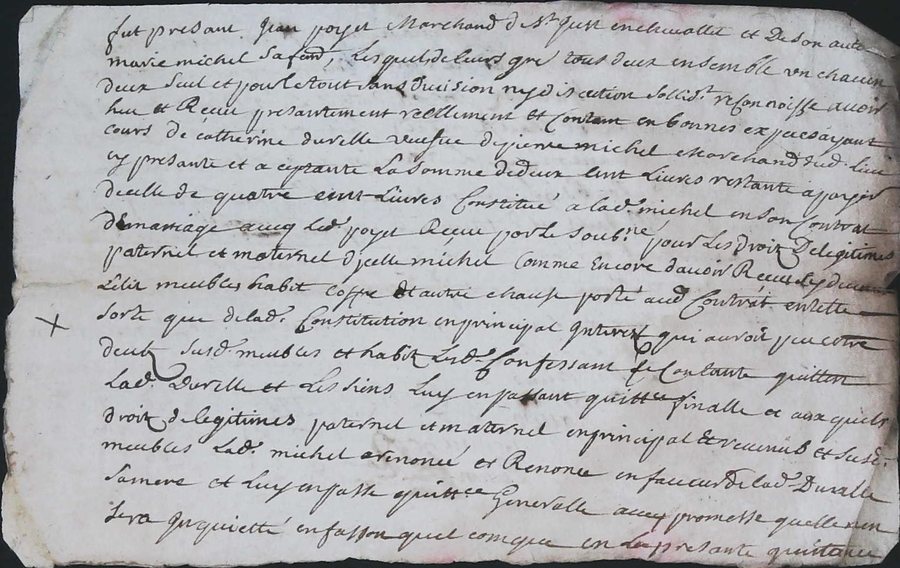 fut presant Jean poyet Marchand de St Just en chevallet et De son auto
marie michel sa fem̃, Lesquels de Leurs gre tous deux ensemble un chacun
deux seul et pour le tout sans division ny discution sollidt reconnoisse avoir
heu et Receu presantement reellement et Contant en bonnes expeces ayant
cours de catherine durelle veufve de pierre michel Marchand dud. Lieu
cy presante et aceptante La somme de deux cent Livres restante a payer
dicelle de quatre cent Livres Constitué a lad. michel en son Contrat
de mariage aveq Led. poyet Receu par le soubne pour Les Droit De legitimes
paternel et maternel dicelle michel comme Encore davoir Receu
Lelit meubles habit coffre et autre chause porté aud Contrat en telle
sorte que de lad. Constitution en principal Interest qui auroit peu estre
deub susd. meubles et habit Lesd. Confessant se Contante quittent
Lad. Durelle et Les siens Luy en passant quittce finalle et aux quels
droit de legitimes paternel et maternel en principal et revenus et susd.
meubles Lad. michel a renoncé et Renonce en faveur de lad. Duralle
sa mere et Luy en passe quittce Generalle avec promesse quelle nen
sera Inquietté en fasson quel conque en La presante quittance